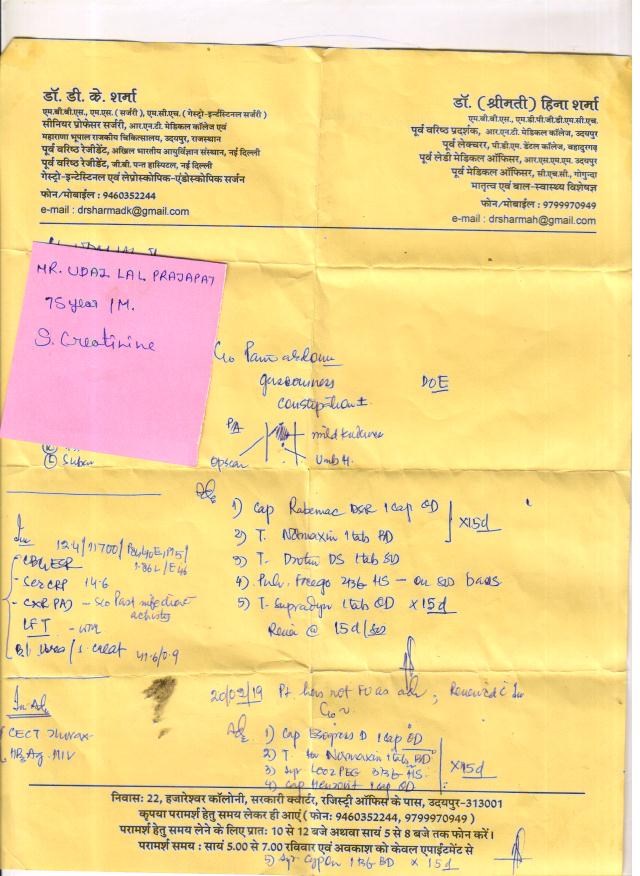 डॉ. डी. के. शर्मा
एम.बी.बी.एस., एम.एस. ( सर्जरी ), एम.सी.एच. ( गेस्ट्रो-इन्टेस्टिनल सर्जरी )
सीनियर प्रोफेसर सर्जरी, आर.एन.टी. मेडिकल कॉलेज एवं
महाराणा भूपाल राजकीय चिकित्सालय, उदयपुर, राजस्थान
पूर्व वरिष्ठ रेजीडेंट, अखिल भारतीय आयुर्विज्ञान संस्थान, नई दिल्ली
पूर्व वरिष्ठ रेजीडेंट, जी.बी. पन्त हास्पिटल, नई दिल्ली
गेस्ट्रो-इन्टेस्टिनल एवं लेप्रोस्कोपिक-एंडोस्कोपिक सर्जन
फोन/मोबाईल : 9460352244
e-mail : drsharmadk@gmail.com
डॉ. (श्रीमती) हिना शर्मा
एम.बी.बी.एस., एम.डी.पी.जी.डी.एम.सी.एच.
पूर्व वरिष्ठ प्रदर्शक, आर.एन.टी. मेडिकल कॉलेज, उदयपुर
पूर्व लेक्चरर, पी.डी.एम. डेंटल कॉलेज, बहादुरगढ़
पूर्व लेडी मेडिकल ऑफिसर, आर.एस.एम.एम. उदयपुर
पूर्व मेडिकल ऑफिसर, सी.एच.सी., गोगुन्दा
मातृत्व एवं बाल-स्वास्थ्य विशेषज्ञ
फोन/मोबाईल : 9799970949
e-mail : drsharmah@gmail.com
MR. UDAI LAL PRAJAPAT
75 year / M.
S. Creatinine
C/o Pain abdomen
gaseousness DOE
constipation ±
P/A mild fullness
Umb H.
Adv
1) Cap Rabemac DSR 1 cap OD
2) T. Normaxin 1 tab BD X 15d
3) T. Drotin DS 1 tab SOS
4) Pulv. Freego 2 tsf HS - on SOS basis
5) T. Supradyn 1 tab OD X 15d
Review @ 15d/sos
Inv
12.4/11700/
CBC ESR
Ser CRP 14.6
CXR PA)
LFT
Bl. Urea / S. creat 41.6/0.9
20/02/19 Pt. has not FU as adv; Reviewed c Inv
Inv Adv
CECT Thorax
HBsAg. HIV
Adv
1) Cap Esogress D 1 cap OD
2) T. Normaxin 1 tab BD
3) Syp Looz PEG 3 tsf HS X 15d
निवास: 22, हजारेश्वर कॉलोनी, सरकारी क्वार्टर, रजिस्ट्री ऑफिस के पास, उदयपुर-313001
कृपया परामर्श हेतु समय लेकर ही आएं ( फोन: 9460352244, 9799970949 )
परामर्श हेतु समय लेने के लिए प्रातः 10 से 12 बजे अथवा सायं 5 से 8 बजे तक फोन करें।
परामर्श समय : सायं 5.00 से 7.00 रविवार एवं अवकाश को केवल एपाईंटमेंट से
5) Syr Cypon 1 tsf BD X 15d